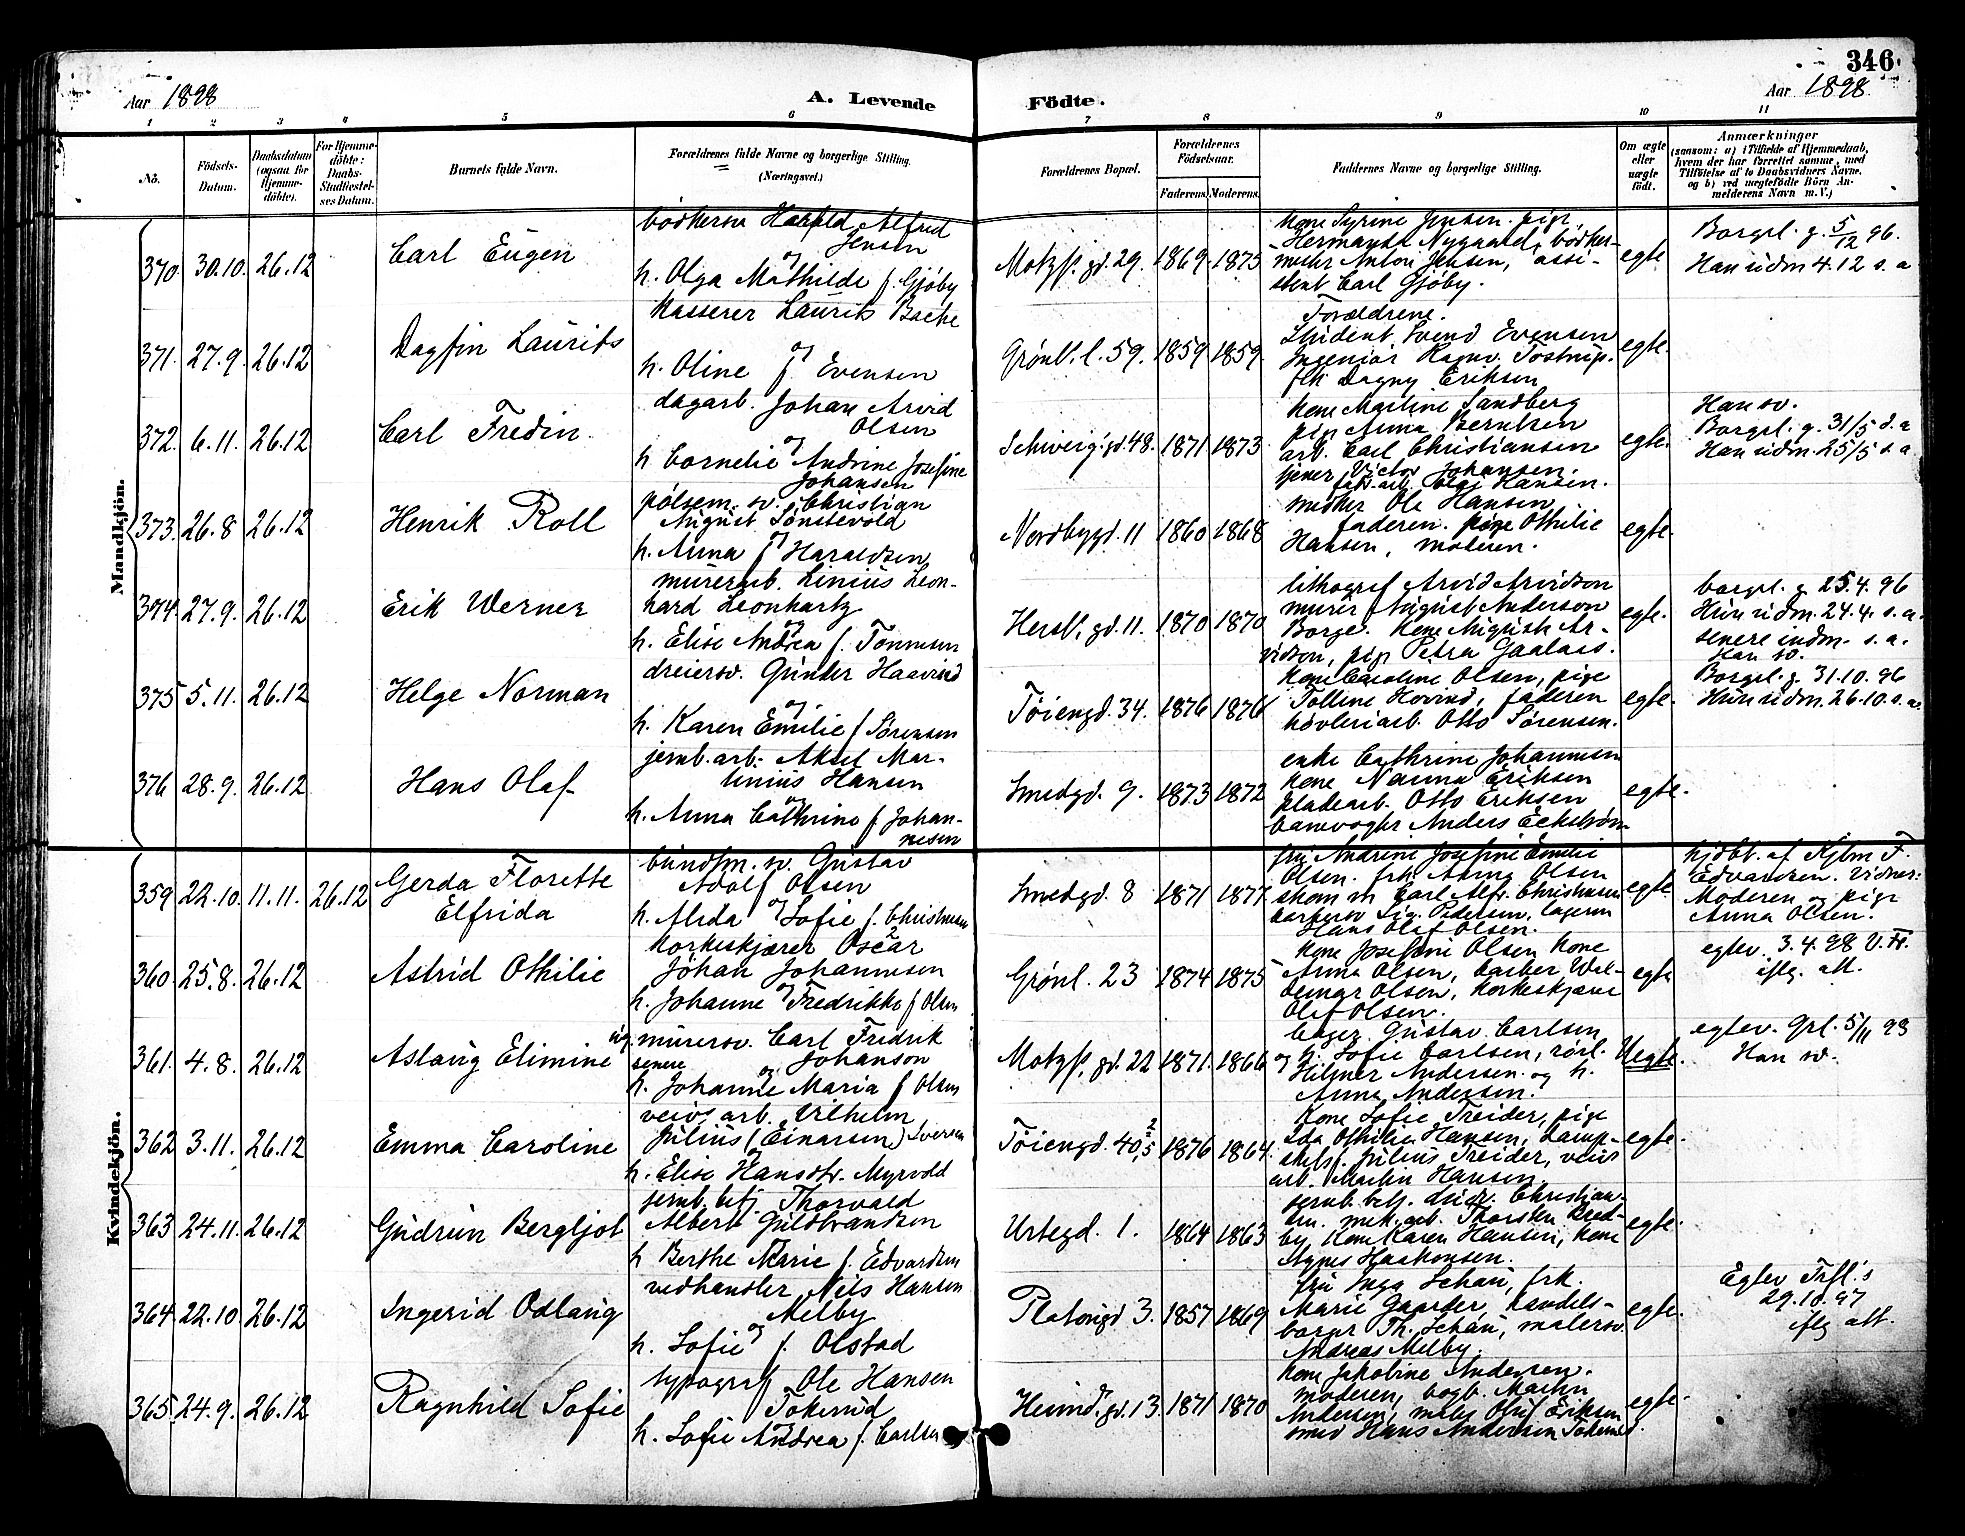 346
Aar 1898
A. Levende Födte.
Aar 1898
1 2 3 4 5 6 7 8 9 10 11
No.
Födsels-Datum.
Daabsdatum (ogsaa for Hjemmedöbte).
For Hjemmedöbte: Daabs-Stadfæstelses Datum.
Barnets fulde Navn.
Forældrenes fulde Navne og borgerlige Stilling.
(Næringsvei.)
Forældrenes Bopæl.
Forældrenes Födselsaar.
Faderens Moderens
Faddernes Navne og borgerlige Stilling.
Om ægte eller uægte födt.
Anmærkninger
(saasom: a) i Tilfælde af Hjemmedaab, hvem der har forrettet samme, med Tilföielse af to Daabsvidners Navne, og b) ved uægtefödte Börn Anmelderens Navn m. V.)
Mandkjön.
370. 30.10. 26.12 Carl Eugen
bödkersv Harald Alfred
Jensen
og
h. Olga Mathilde f. Gjöby
Motzf. gd. 29. 1869. 1875
kone Syrine Jensen. pige
Hermanda Nygaard, bödker-
mester Anton Jensen, assi-
stent Carl Gjöby.
egte
Borgel. g. 5/12 96.
Han udm 4.12 s. a
371. 27.9. 26.12 Dagfin Laurits
Kasserer Laurits Bache
og
h. Oline f. Evensen
Grönl. l. 59. 1859 1859.
Forældrene.
Student Svend Evensen
Ingeniör Ragnv. Tostrup.
frk Dagny Eriksen
egte.
372. 6.11. 26.12 Carl Fredin.
dagarb. Johan Arvid
Olsen
og
h. Cornelie Andrine Josefine
Johansen
Schweig. gd. 48. 1871 1873
Kone Martine Sandberg
pige Anna Berntsen
arb. Carl Christiansen
tjener Victor Johansen.
egte.
Han sv.
Borgel. g. 31/5 s. a
Han udm. 25/5 s. a
373. 26.8 26.12 Henrik Roll
pölsem. sv. Christian
August Sönstevold
og
h. Anna f. Haraldsen
Nordbygd. 11 1860 1868
Ole Hansen,
faderen. pige Othilie
Hansen, moderen.
egte.
374. 27.9. 26.12 Erik Werner
murerarb. Linius Leon-
hard Leonhartz
og
h. Elise Andrea f. Tönnesen
Hersl. gd. 11. 1870 1870
lithograf Arvid Arvidson
murer August Anderson
Borge. Kone Augusta Ar-
vidson, pige Petra Gaalaas.
egte.
borgel. g 25.4. 96
Hun udm. 24.4. s. a.
senere indm. s. a.
375 5.11. 26.12 Helge Norman
dreiersv. Gunder Haavind
og
h. Karen Emilie f Sörensen
Töiengd. 34. 1876 1876
Kone Caroline Olsen, pige
Tolline Hovind, faderen
hövleriarb. Otto Sörensen.
egte.
Han sv.
Borgel. g 31.10. 96
Hun udm. 26.10. s. a.
376 28.9. 26.12 Hans Olaf
jernb. arb. Aksel Mar-
tinius Hansen
og
h. Anna Cathrine f Johan-
nesen
Smedgd. 9. 1873 1872
enke Cathrine Johannesen
kone Nanna Eriksen
pladearb. Otto Eriksen
banevogter Anders Eckström
egte.
Kvindekjön.
359 22.10. 11.11. 26.12 Gerda Florette
Elfrida
bundtm. sv. Gustav
Adolf Olsen
og
h. Alida Sofie f. Christensen
Smedgd. 8 1871 1877.
fru Andrine Josefine Emilie
Olsen. frk Anna Olsen
skom m Carl Alfr. Christensen
barbersv Sig. Pedersen,
Hans Olaf Olsen.
egte
hjdbt. af Kjbm F.
Edvardsen. Vidner:
Moderen og pige
Anna Olsen.
360. 25.8. 26.12 Astrid Othilie
korkeskjærer Oscar
Johan Johannesen
og
h. Johanne Fredrikke f Olsen
Grönl. 23 1874 1875
Kone Josefine Olsen kone
Anna Olsen, barber Wal-
demar Olsen, korkeskjærer
Olaf Olsen.
egte
egtev. 3.4. 98 V. Fr.
iflg. att.
361. 4.8. 26.12 Aslaug Elimine
ug. murersv. Carl Fredrik
senere Johanson
og
h. Johanne Maria f Olsen
Motzf. gd. 22 1871. 1866
bager Gustav Carlsen
og h. Sofie Carlsen, rörl.
Hilmer Andersen og h.
Anna Andersen.
Uegte.
egtev. Grl. 5/11 98
Han sv.
362 3.11. 26.12 Emma Caroline
veivs arb. Vilhelm
Julius (Einarsen) Iversen
og
h. Elise Hansdtr. Myrvold
Töiengd. 40,5 1876 1864.
Kone Sofie Treider, pige
Ida Othilie Hansen, Lamp-
Julius Treider, veivs
arb. Martin Hansen.
egte.
363 24.11. 26.12 Gudrun Bergljot
jernb. betj. Thorvald
Albert Guldbrandsen
h Berthe Marie f. Edvardsen
Urtegd. 1. 1864 1863
jernb. betj. Christian-
sen. mek. arb. Thorsten Bred-
by, kone Karen Hansen, kone
Agnes Haakonsen.
egte.
364. 22.10 26.12 Ingerid Odlaug
vedhandler Nils Hansen
Melby
og
h. Sofie f. Olstad
Platougd 3. 1857 1869
fru Inga Schau, frk.
Marie Gaarder, handels-
borger Th. Schau, malersv.
Andreas Melby.
egte.
Egtev Trfl.s
29.10.97
iflg att.
365. 24.9. 26.12 Ragnhild Sofie
typograf Ole Hansen
Tokerud
h. Sofie Andrea f. Carlsen
Heimd. gd. 13. 1871 1870
kone Jakobine Andersen.
moderen, bogb. Martin
Andersen, maler Olaf Eriksen
smed Hans Andersen Tokerud.
egte.